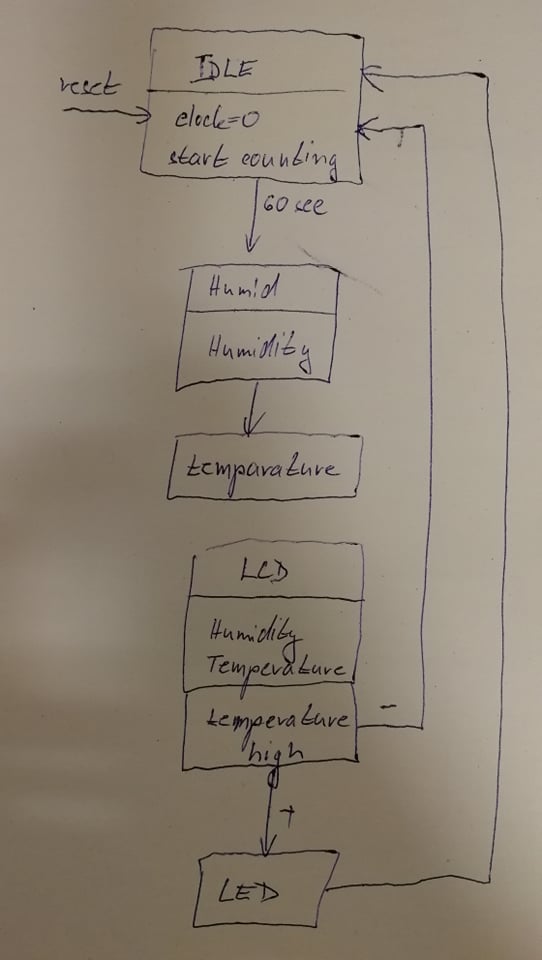 IDLE
reset
clock=0
start counting
60 sec
Humid
Humidity
temparature
LCD
Humidity
Temperature
temperature
high
-
+
LED